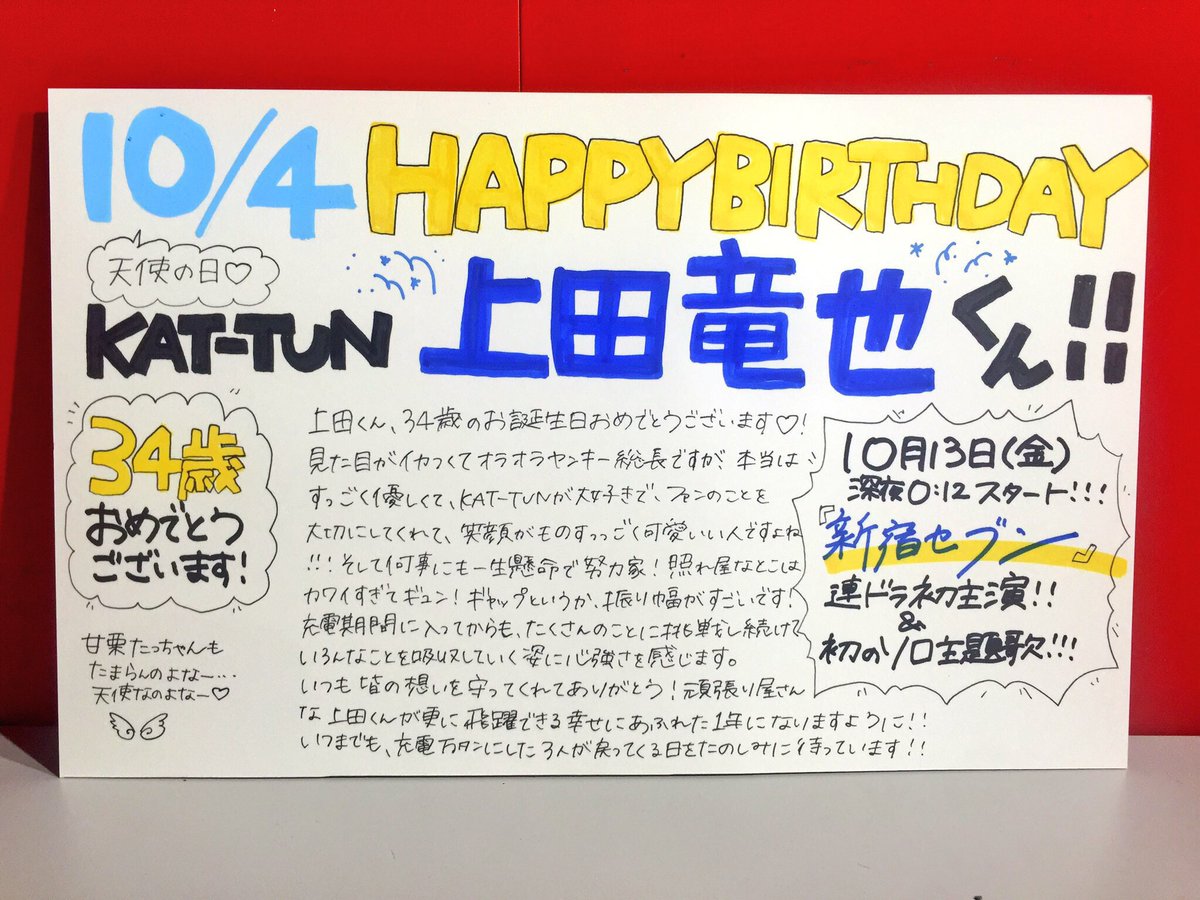 10/4 HAPPY BIRTHDAY
天使の日♡
KAT-TUN 上田竜也くん!!
34歳
おめでとう
ございます!
甘栗たっちゃんも
たまらんのよなー…
天使なのよなー♡
上田くん、34歳のお誕生日おめでとうございます♡!
見た目がイカつくてオラオラヤンキー総長ですが、本当は
すっごく優しくて、KAT-TUNが大好きで、ファンのことを
大切にしてくれて、笑顔がものすっっごく可愛いい人ですよね
!!! そして何事にも一生懸命で努力家! 照れ屋なとこは
カワイすぎてギュン! ギャップというか、振り幅がすごいです!
充電期間に入ってからも、たくさんのことに挑戦し続けて
いろんなことを吸収していく姿に心強さを感じます。
いつも皆の想いを守ってくれてありがとう! 頑張り屋さん
な上田くんが更に飛躍できる幸せにあふれた1年になりますように!!
いつまでも、充電万タンにした3人が戻ってくる日をたのしみに待っています!!
10月13日(金)
深夜0:12スタート!!!
『新宿セブン』
連ドラ初主演!!
&
初のソロ主題歌!!!